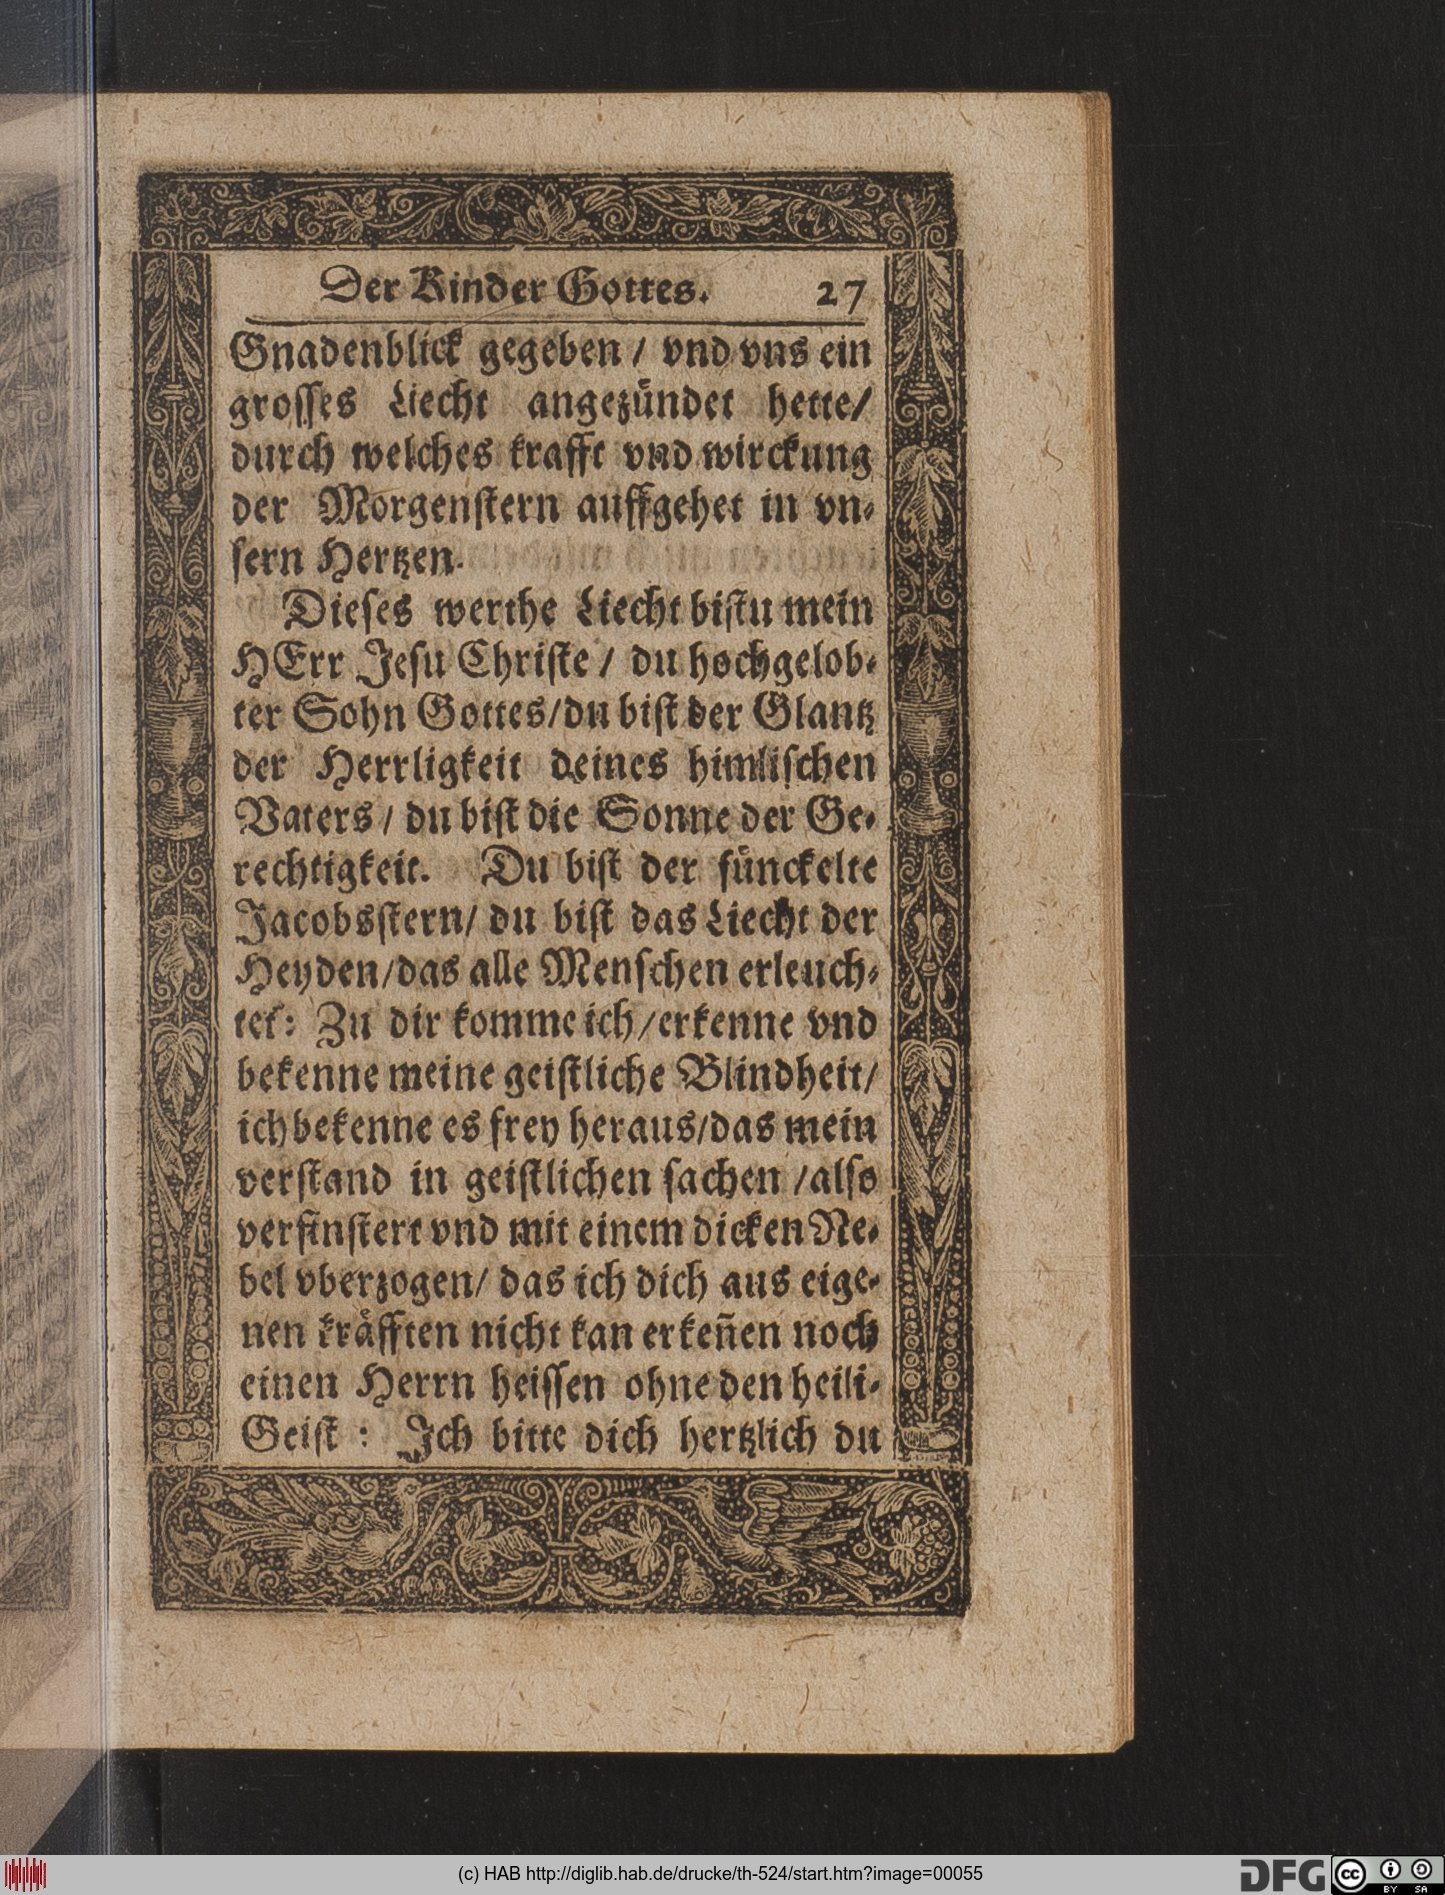 Der Kinder Gottes. 27
Gnadenblick gegeben / vnd vns ein
groſſes Liecht angezündet hette/
durch welches krafft vnd wirckung
der Morgenſtern auffgehet in vn-
ſern Hertzen.
Dieſes werthe Liecht biſtu mein
HErr Jeſu Chriſte / du hochgelob-
ter Sohn Gottes/du biſt der Glantz
der Herrligkeit deines himliſchen
Vaters / du biſt die Sonne der Ge-
rechtigkeit. Du biſt der fünckelte
Jacobsſtern/ du biſt das Liecht der
Heyden/das alle Menſchen erleuch-
tet: Zu dir komme ich/erkenne vnd
bekenne meine geiſtliche Blindheit/
ich bekenne es frey heraus/das mein
verſtand in geiſtlichen ſachen /alſo
verfinſtert vnd mit einem dicken Ne-
bel vberzogen/ das ich dich aus eige-
nen kräfften nicht kan erkeñen noch
einen Herrn heiſſen ohne den heili-
Geiſt : Ich bitte dich hertzlich du
(c) HAB http://diglib.hab.de/drucke/th-524/start.htm?image=00055
DFG
cc BY SA